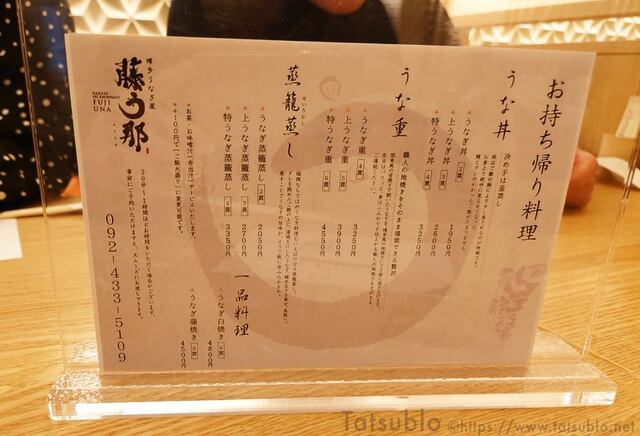 お持ち帰り料理
うな丼
決め手は釜蒸し
うなぎ丼 2貫 1950円
上うなぎ丼 3貫 2600円
特うなぎ丼 4貫 3250円
うな重
職人の地焼きをそのまま堪能できる贅沢
うなぎ重 4貫 3250円
上うなぎ重 5貫 3900円
特うなぎ重 6貫 4550円
蒸籠蒸し
うなぎ蒸籠蒸し 2貫 2050円
上うなぎ蒸籠蒸し 3貫 2700円
特うなぎ蒸籠蒸し 4貫 3350円
一品料理
うなぎ白焼き 6貫 4800円
うなぎ蒲焼き 6貫 4500円
お茶・お味噌汁(赤出汁)サービスいたします。
+100円で「ご飯大盛り」に変更可能です。
30分~1時間ほどお時間をいただく場合がございます。
事前にご予約いただきますと、スムーズにお渡しできます。
092-433-5109
博多うなぎ屋
藤う那
HAKATA
FUJI
UNA
Tatsublo ©https://www.tatsublo.net